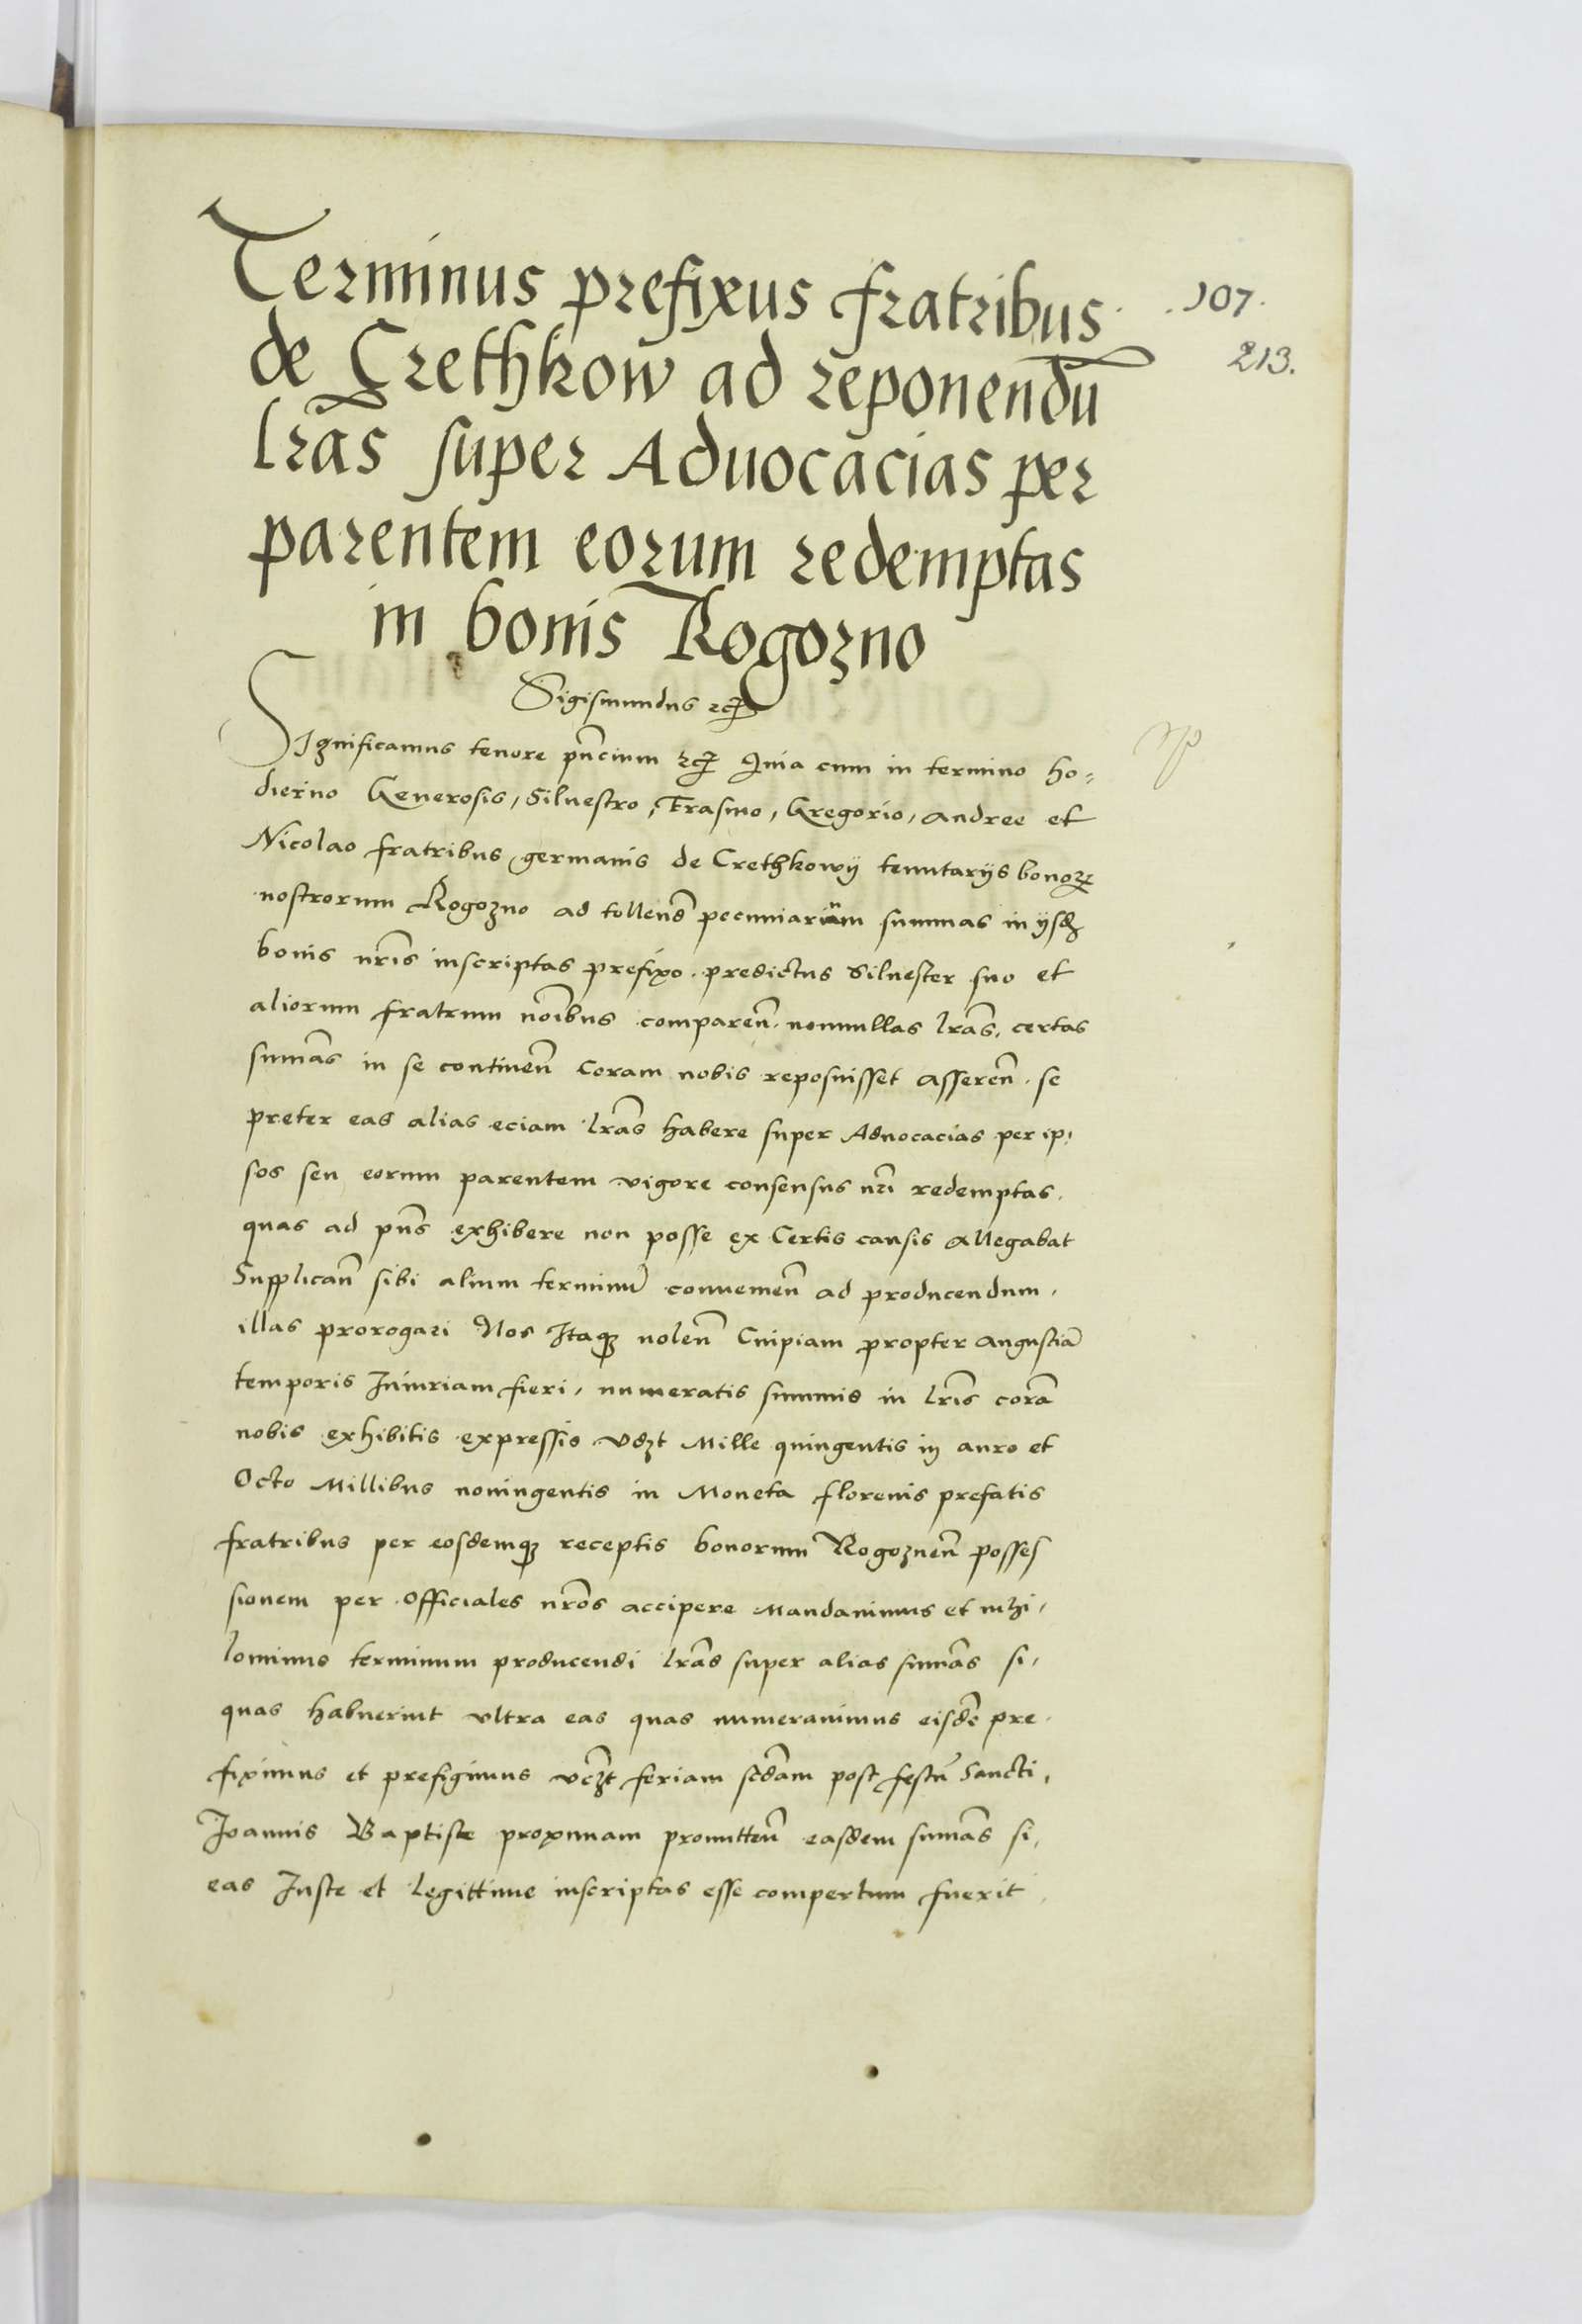 Terminus prefixus fratribus
107.
de Crethkow ad reponendũ
213.
lrãs super Aduocacias per
parentem eorum redemptas
in bonis Rogozno
Sigismundus etc̃
Significamus tenore pñcium etc̃ Quia cum in termino ho=
dierno Generosis, Siluestro, Erasmo, Gregorio, Andree et
Nicolao fratribus germanis de Crethkowÿ tenutarÿs bonoꝝ
nostrorum Rogozno ad tollend̃ pecuniariam summas in ÿsdẽ
bonis nrĩs inscriptas prefixo. predictus Siluester suo et
aliorum fratrum noĩbus compareñ. nonnullas lrãs, certas
sum̃as in se contineñ Coram nobis reposuisset Assereñ. se
preter eas alias eciam lrãs habere super Aduocacias per ip,
sos seu eorum parentem vigore consensus nrĩ redemptas.
quas ad pñs exhibere non posse ex Certis causis Allegabat
Supplicañ sibi alium terminũ conuenieñ ad producendum,
illas prorogari Nos Itaqꝫ noleñ Cuipiam propter angustiã
temporis Iniuriam fieri, numeratis summis in lrĩs corã
nobis exhibitis expressis vdzt Mille quingentis in auro et
Octo Millibus noningentis in Moneta florenis prefatis
fratribus per eosdemqꝫ receptis bonorum Rogozneñ posses
sionem per Officiales nrõs accipere Mandauimus et nihi,
lominus terminum producendi lrãs super alias sum̃as si,
quas habuerint vltra eas quas numerauimus eisdẽ pre.
fiximus et prefigimus vczt̃ feriam scdãm post festũ Sancti,
Joannis Baptiste proximam promitteñ easdem sum̃as si,
eas Juste et legittime inscriptas esse compertum fuerit